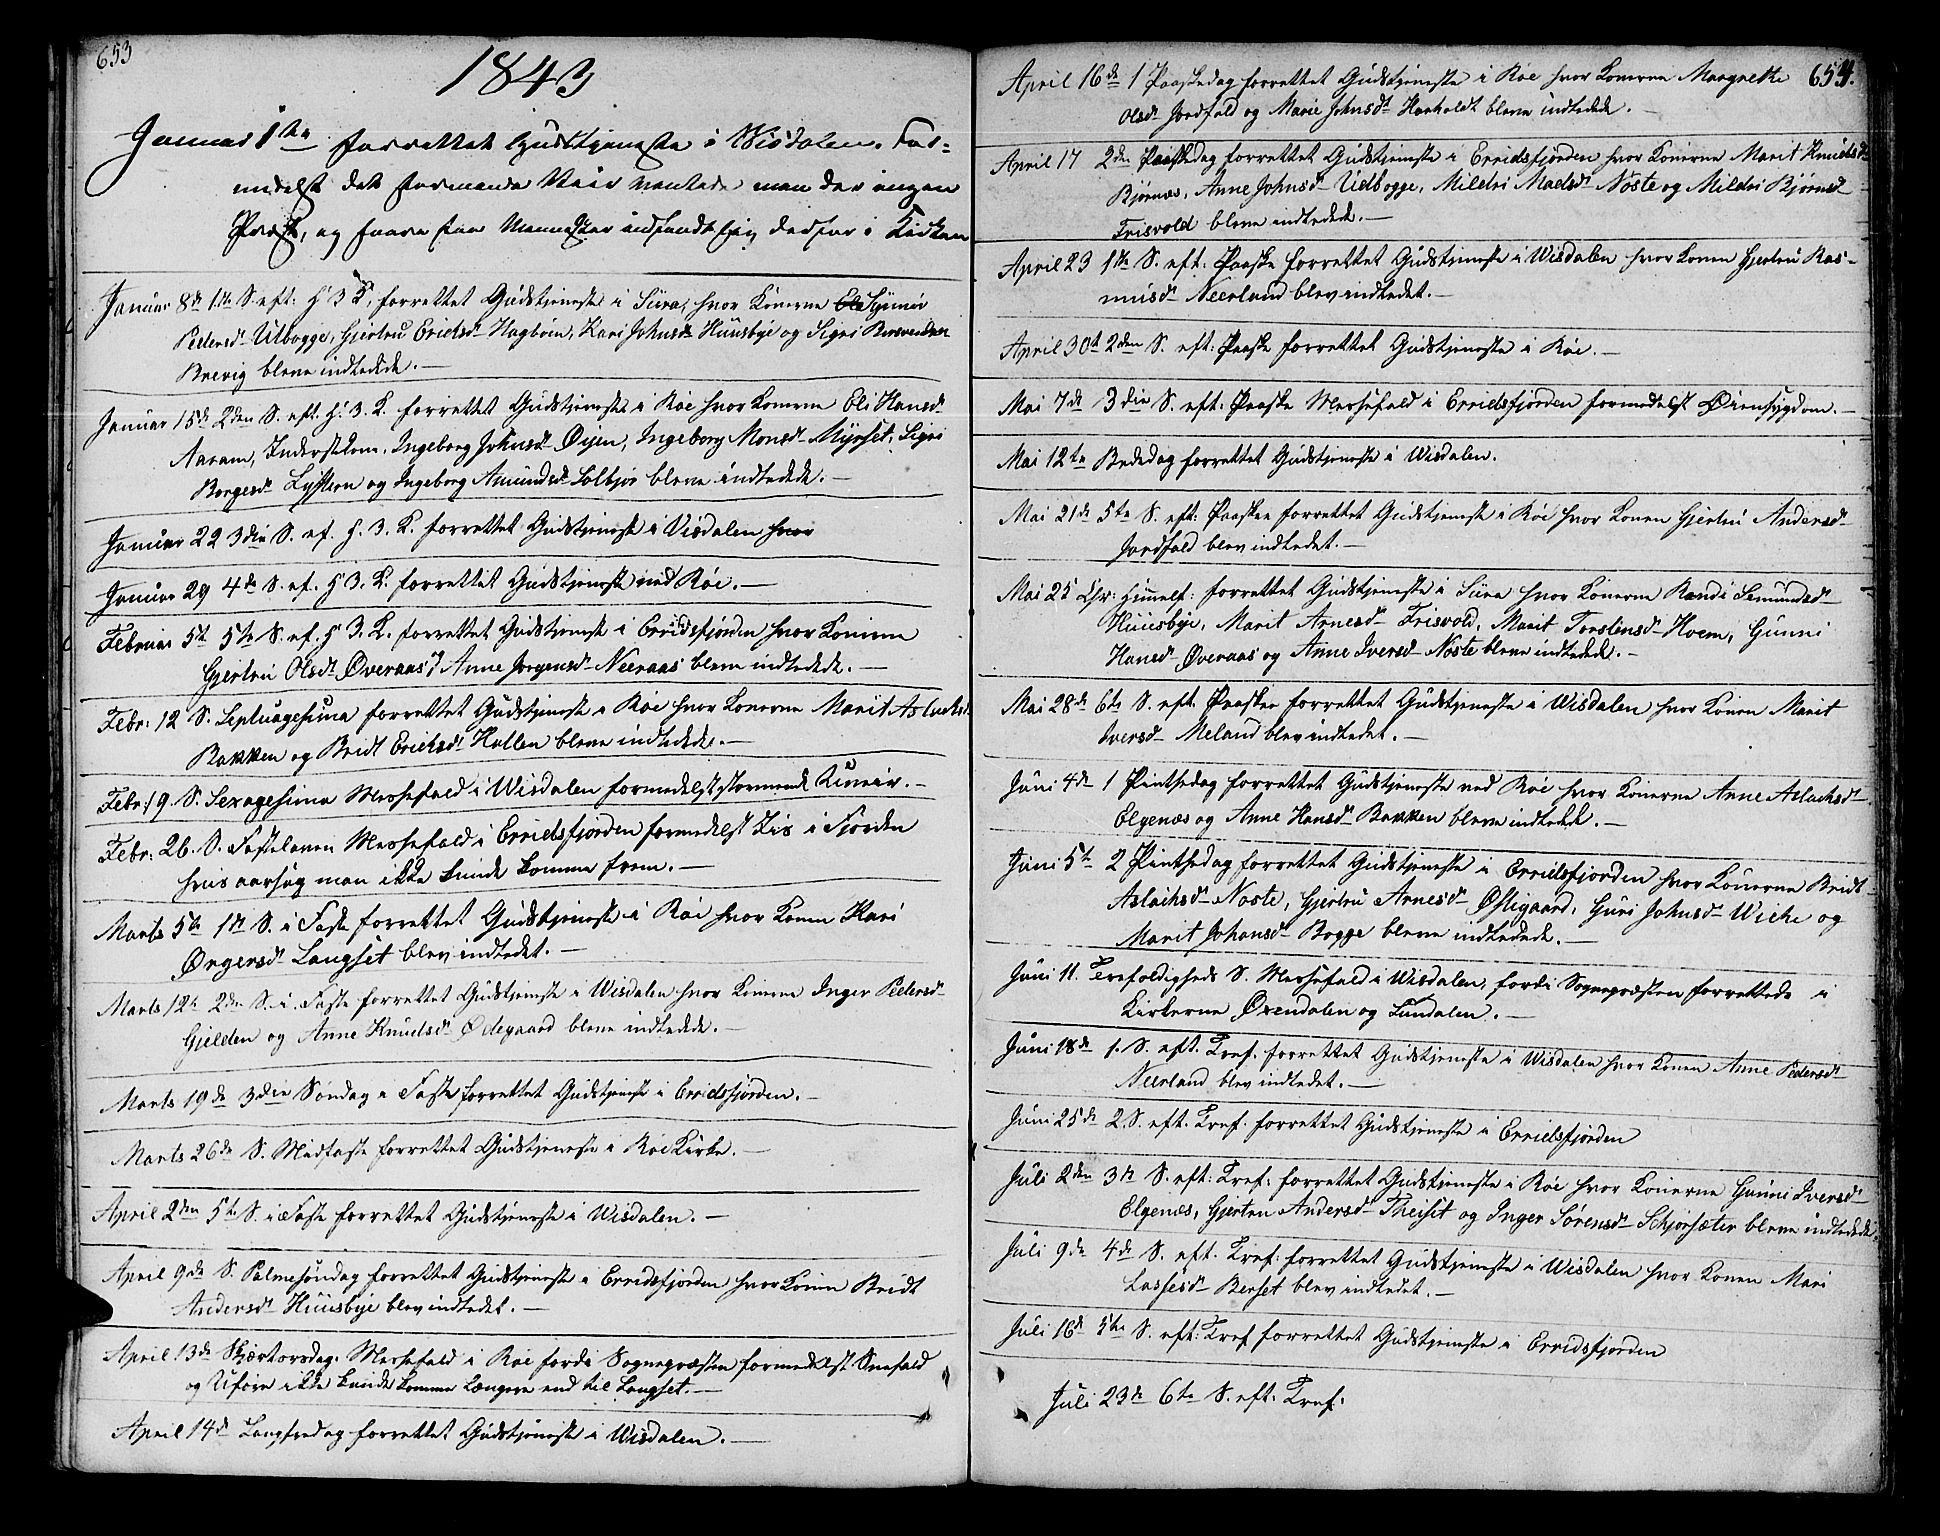 653
1843
Januar 1te forrettet Gudstjeneste i Wisdalen. For-
medelst det stormende Veir ventede man der ingen
Præst, og faare faa Mennesker indfandt sig derfor i Kirken
Januar 8de 1ste S. eft: H 3 K, forrettet Gudstjeneste i Siira, hvor Konerne
Pedersd. Utbogge, Gjertru Erichsd. Hagbøen, Kari Johnsd. Huusbye og Sigri
Brevig bleve indledede. —
Januar 15de 2den S. eft. H. 3. K. forrettet Gudstjeneste i Röe hvor Konerne Eli Hansd.
Aaram, Ingeborg Johnsd. Öijen, Ingeborg Monsd. Myrset, Sigri
Borgesd. og Ingeborg Amundsd. Solbjør bleve indledede. —
Januar 22 3die S. ef. H. 3. K. forrettet Gudstjeneste i Visdalen hvor
Januar 29 4de S. ef. H 3. K. forrettet Gudstjeneste ved Röe. —
Februar 5te 5te S. ef. H. 3. K. forrettet Gudstjeneste i Erridsfjorden hvor Konerne
Gjertru Olsd. Øveraas Anne Jorgensd. Neeraas bleve indledede. —
Febr: 12 S. Septuagesima forrettet Gudstjeneste i Röe hvor Konerne Marit Aslachsd.
Bakken og Bridt Erichsd. Hallen bleve indledede. —
Febr: 19 S. Sexagesima Messefald i Wisdalen formedelst stormende Uveir. —
Febr: 26. S. Fastelaven Messefald i Erridsfjorden formedelst Iis i Fjorden
hvis aarsag man ikke kunde komme frem. —
Marts 5te 1ste S. i Faste forrettet Gudstjeneste i Röe hvor Konen Kari
Ørgersd. Langset blev indledet. —
Marts 12te 2den S. i Faste forrettet Gudstjeneste i Wisdalen hvor Konerne Inger Pedersd.
Gjelden og Anne Knudsd. Ødegaard bleve indledede. —
Marts 19de 3die Söndag i Faste forrettet Gudstjeneste i Erridsfjorden. —
Marts 26de S. Midfaste forrettet Gudstjeneste i Röe Kirke. —
April 2den 5te S. i Faste forrettet Gudstjeneste i Wisdalen. —
April 9de S. Palmesöndag forrettet Gudstjeneste i Erridsfjorden hvor Konen Bridt
Andersd. Huusbye blev indledet. —
April 13de Skjærtorsdag. Messefald i Röe fordi Sognepræsten formedelst Sneefald
og Uföre ikke kunde komme længere end til Langset. —
April 14de Langfredag forrettet Gudstjeneste i Wisdalen. —
654.
April 16de 1 Paaskedag forrettet Gudstjeneste i Röe hvor Konerne Margrethe
Olsd. Jordfald og Marie Johnsd. Haaholdt bleve indledede. —
April 17 2den Paaskedag forrettet Gudstjeneste i Erridsfjorden hvor Konerne Marit Knudsd.
Bjørnes, Anne Johnsd. Udbogge, Mildri Madsd. Nöste og Mildri Bjørnsd.
Frisvold bleve indledede. —
April 23 1ste S. eft: Paaske forrettet Gudstjeneste i Wisdalen hvor Konen Gjertru Ras-
musd. Neerland blev indledet. —
April 30te 2den S. eft: Paaske forrettet Gudstjeneste i Röe. —
Mai 7de 3die S. eft: Paaske Messefald i Erridsfjorden formedelst Øiensygdom. —
Mai 12te Bededag forrettet Gudstjeneste i Wisdalen.
Mai 21de 5te S. eft: Paaske forrettet Gudstjeneste i Röe hvor Konen Gjertru Andersd.
Jordfald blev indledet. —
Mai 25 Chr: Himelf: forrettet Gudstjeneste i Siira hvor Konerne Randi Semundsd.
Huusbye, Marit Arnesd. Frisvold, Marit Torstensd. Hoem, Gunni
Hansd. Øveraas og Anne Iversd. Nöste bleve indledede. —
Mai 28de 6te S. eft Paaske forrettet Gudstjeneste i Wisdalen hvor Konen Marit
Iversd. Meland blev indledet. —
Juni 4de 1 Pintsedag forrettet Gudstjeneste ved Röe hvor Konerne Anne Aslachsd.
Elgenæs og Anne Hansd. Bakken bleve indledede. —
Juni 5te 2 Pintsedag forrettet Gudstjeneste i Erridsfjorden hvor Konerne Bridt
Aslachsd. Noste, Gjertru Arnesd. Østigaard, Guri Johnsd. Wiche og
Marit Johansd. Bogge bleve indledede. —
Juni 11. Trefoldigheds S. Messefald i Wisdalen, fordi Sognepræsten forrettede i
Kirkerne Øxendalen og Sundalen. —
Juni 18de 1. S. eft. Tref. forrettet Gudstjeneste i Wisdalen hvor Konen Anne Pedersd.
Neerland blev indledet. —
Juni 25de 2. S. eft. Tref. forrettet Gudstjeneste i Erridsfjorden
Juli 2den 3die S. eft: Tref: forrettet Gudstjeneste i Röe hvor Konerne Gunni Iversd.
Elgenæs, Gjertru Andersd. Theiset og Inger Sörensd. Schjorsæter bleve indledede.
Juli 9de 4de S. eft. Tref: forrettet Gudstjeneste i Wisdalen hvor Konen Mari
Lassesd. Berset blev indledet. —
Juli 16de 5te S. eft: Tref forrettet Gudstjeneste i Erridsfjorden
Juli 23de 6te S. eft: Tref: